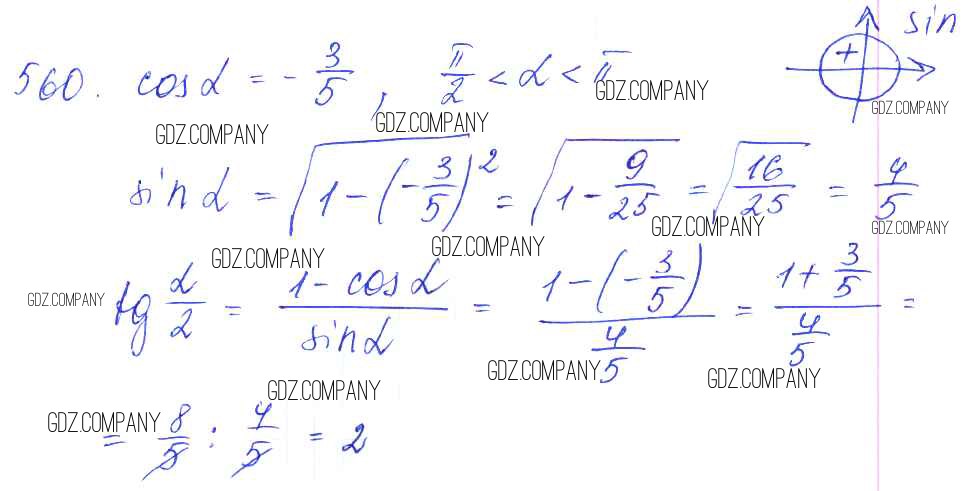 560. cos α = - 3/5, π/2 < α < π sin
+
GDZ.COMPANY GDZ.COMPANY GDZ.COMPANY GDZ.COMPANY
sin α = √(1 - (-3/5)²) = √(1 - 9/25) = √(16/25) = 4/5
GDZ.COMPANY GDZ.COMPANY GDZ.COMPANY GDZ.COMPANY
GDZ.COMPANY tg α/2 = (1 - cos α)/(sin α) = (1 - (-3/5))/(4/5) = (1 + 3/5)/(4/5) =
GDZ.COMPANY GDZ.COMPANY GDZ.COMPANY
GDZ.COMPANY
= 8/5 : 4/5 = 2